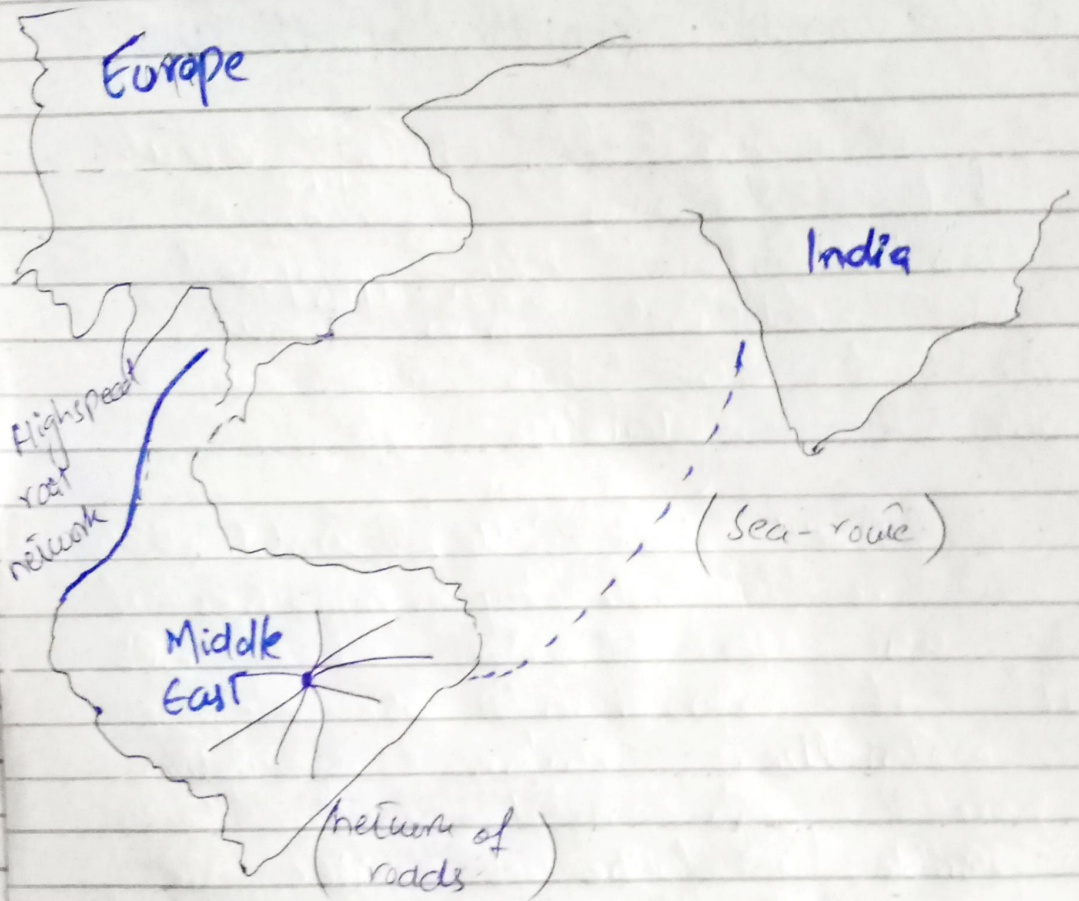 Europe
India
Highspeed
network
(Sea-route)
Middle
East
(network of
roads)